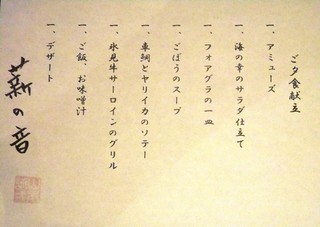 ご夕食献立
一、アミューズ
一、海の幸のサラダ仕立て
一、フォアグラの一皿
一、ごぼうのスープ
一、車鯛とヤリイカのソテー
一、氷見牛サーロインのグリル
一、ご飯、お味噌汁
一、デザート
薪の音